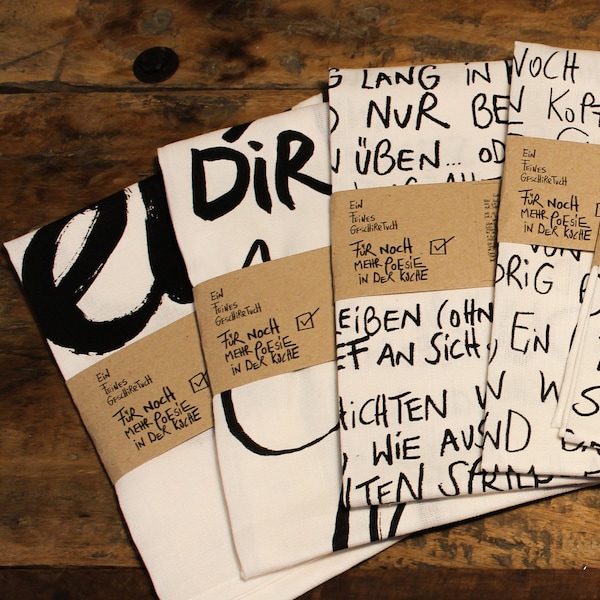 DiR
EiN
FEiNES
GESCHiRRTUCH
FÜR NOCH
MEHR POESiE
iN DER KÜCHE
EiN
FEiNES
GESCHiRRTUCH
FÜR NOCH
MEHR POESiE
iN DER KÜCHE
LANG iN
NUR BE
ÜBEN... OD
EiN
FEiNES
GESCHiRRTUCH
FÜR NOCH
MEHR POESiE
iN DER KÜCHE
EiBEN (OHN
EF AN SiCH,
HiCHTEN
WiE AUS
NOCH
KOPF
EiN
FEiNES
GESCHiRRTUCH
FÜR NOCH
MEHR POESiE
iN DER KÜCHE
VON
DRiG
EiN
ND